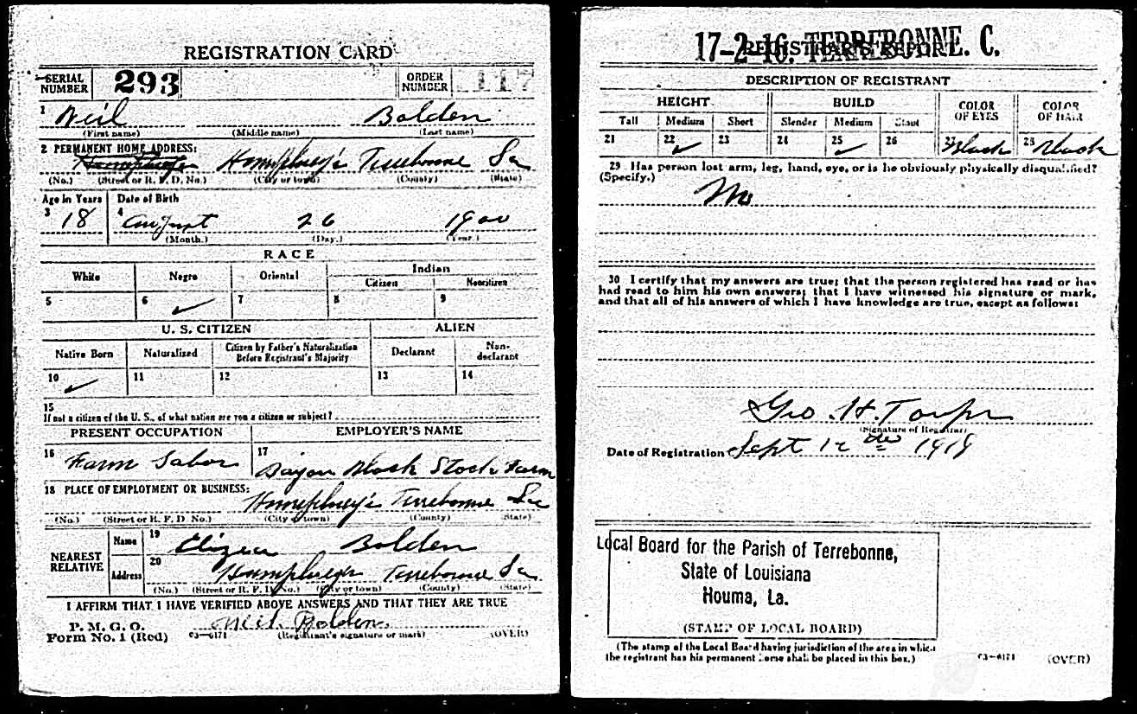 REGISTRATION CARD
SERIAL NUMBER 293 ORDER NUMBER 117
1 Neil Bolden
(First name) (Middle name) (Last name)
2 PERMANENT HOME ADDRESS:
Humphrey's Terrebonne La
(No.) (Street or R. F. D. No.) (City or town) (County) (State)
Age in Years Date of Birth
3 18 4 August 26 1900
(Month.) (Day.) (Year.)
RACE
White Negro Oriental Indian
Citizen Noncitizen
5 6 ✓ 7 8 9
U. S. CITIZEN ALIEN
Native Born Naturalized Citizen by Father's Naturalization Before Registrant's Majority Declarant Non-declarant
10 ✓ 11 12 13 14
15
If not a citizen of the U. S., of what nation are you a citizen or subject?
PRESENT OCCUPATION EMPLOYER'S NAME
16 Farm Labor 17 Bayou Black Stock Farm
18 PLACE OF EMPLOYMENT OR BUSINESS:
Humphrey's Terrebonne La
(No.) (Street or R. F. D No.) (City or town) (County) (State)
NEAREST RELATIVE
Name 19 Bolden
Address 20 Humphreys Terrebonne La
(No.) (Street or R. F. D. No.) (City or town) (County) (State)
I AFFIRM THAT I HAVE VERIFIED ABOVE ANSWERS AND THAT THEY ARE TRUE
P. M. G. O.
Form No. 1 (Red) C3—6171 Neil Bolden
(Registrant's signature or mark) (OVER)
17-2-16. TERREBONNE. C.
REGISTRAR'S REPORT
DESCRIPTION OF REGISTRANT
HEIGHT BUILD COLOR OF EYES COLOR OF HAIR
Tall Medium Short Slender Medium Stout
21 22 ✓ 23 24 25 ✓ 26 27 Black 28 Black
29 Has person lost arm, leg, hand, eye, or is he obviously physically disqualified?
(Specify.)
No
30 I certify that my answers are true; that the person registered has read or has
had read to him his own answers; that I have witnessed his signature or mark,
and that all of his answers of which I have knowledge are true, except as follows:
Geo. H.
(Signature of Registrar)
Date of Registration Sept 12 1918
Local Board for the Parish of Terrebonne,
State of Louisiana
Houma, La.
(STAMP OF LOCAL BOARD)
(The stamp of the Local Board having jurisdiction of the area in which
the registrant has his permanent home shall be placed in this box.)
C3—6171 (OVER)